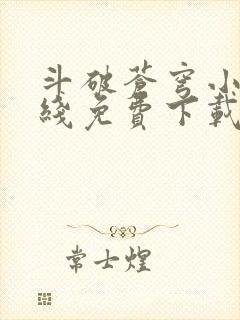 斗破苍穹小
线免费下载
常士煌